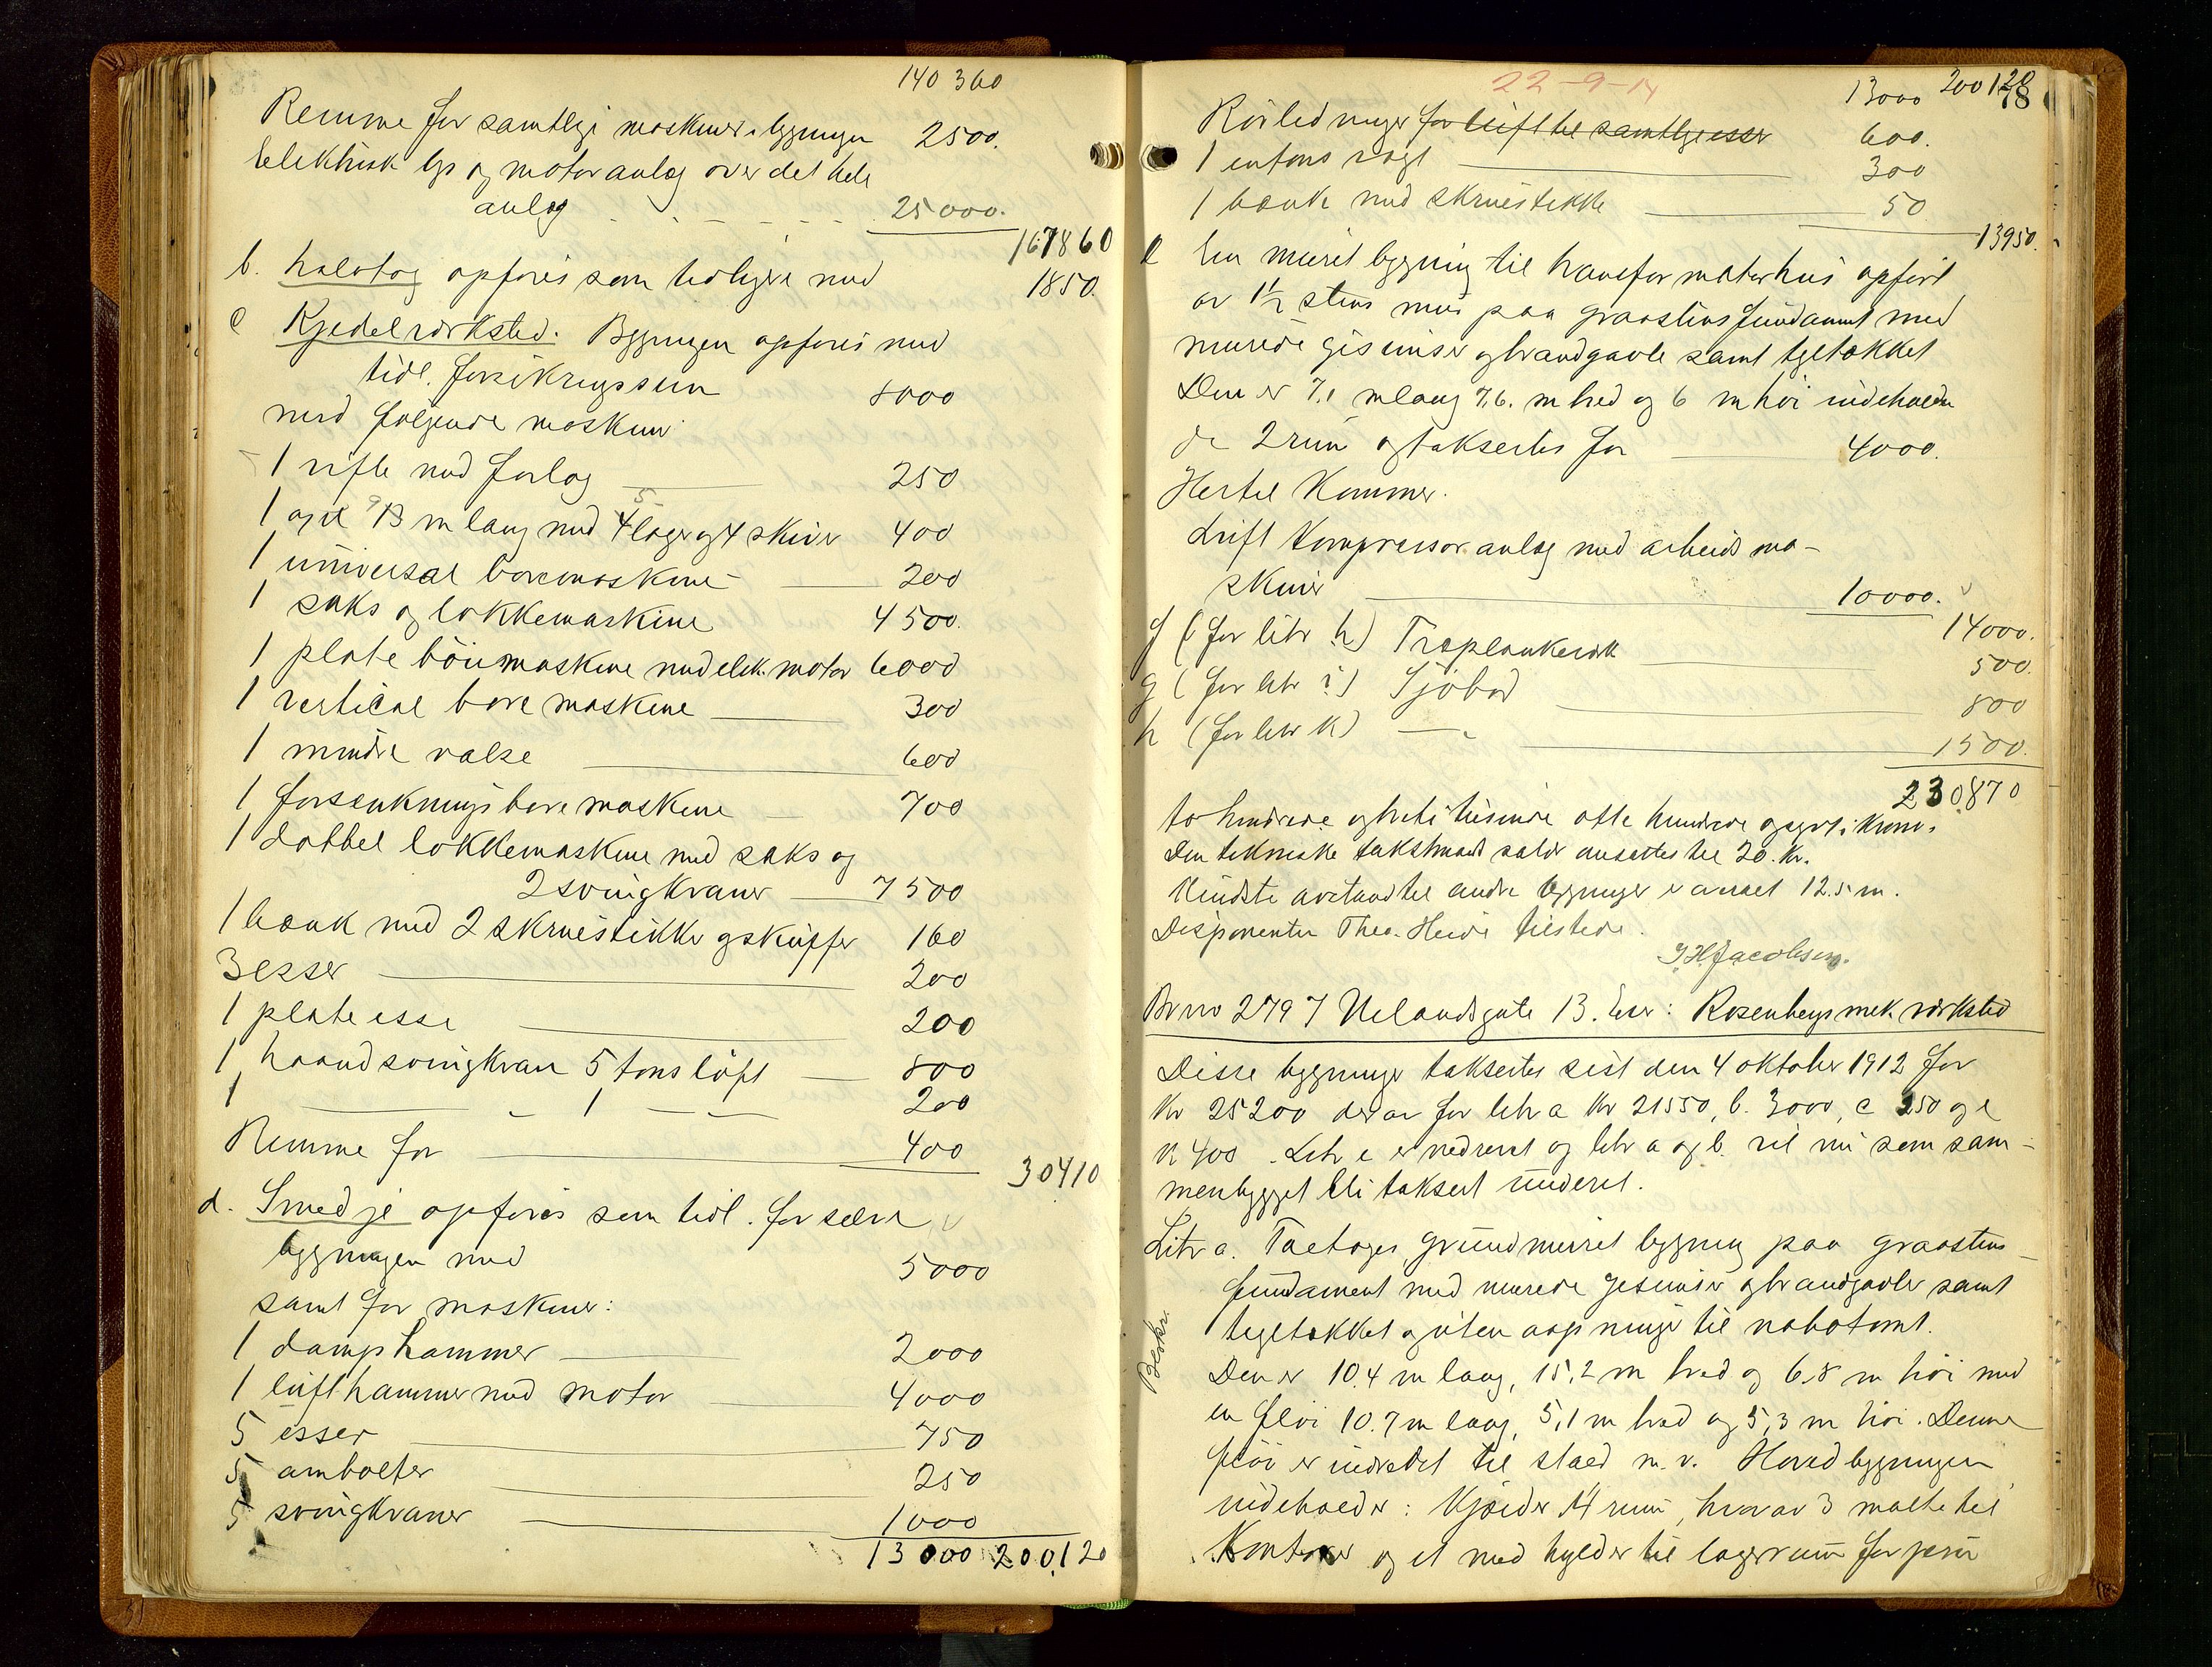 140 360
Remme for samtlige maskiner i bygningen 2500.
Elektrisk lys og motoranlæg over det hele
anlæg 25000.
167860
b. halvtag opføres som tidligere med 1850.
c Kjedelverksted. Bygningen opføres med
tidl. forsikringssum 8000
med følgende maskiner
1 vifte med forlag 250
1 axel 9 13 m lang med 5 4 lager og 4 skiver 400
1 universal boremaskine 200
1 saks og lokkemaskine 4500.
1 plate böiemaskine med elek. motor 6000
1 vertical bore maskine 300
1 mindre valse 600
1 forsænkningsbore maskine 700
1 dobbel lokkemaskine med saks og
2 svingkraner 7500
1 bænk med 2 skruestikker og skuffer 160
3 esser 200
1 plateesse 200
1 haandsvingkran 5 tons løft 800
1 — " — 1 — " — 200
Remme for 400
30410
d. Smedje opføres som tidl. for selve
bygningen med 5000
samt for maskiner:
1 damphammer 2000
1 lufthammer med motor 4000
5 esser 750
5 ambolter 250
5 svingkraner 1000
13000 200,120
22-9-14
13000 200120
78
Rörledninger for luft til samtlige esser 600.
1 entons vægt 300
1 bænk med skruestikke 50
13950.
e En muret bygning til transformatorhus opført
av 1½ stens mur paa graastensfundament med
murede gesimser og brandgavle samt tegltækket
Den er 7.1 m lang 7,6. m bred og 6 m høi indeholden
de 2 rum og taksertes for 4000.
Hertil kommer.
Luft kompressor anlæg med arbeids ma-
skiner 10000.
14000.
f (før litr h) Træplankeværk 500.
g (før litr i) Sjøbod 800
h (før litr k) — " 1500.
230870
to hundrede og treti tusinde otte hundrede og sytti kroner.
Den tekniske takstmands salær ansættes til 20. kr.
Mindste avstand til andre bygninger er anset 12.5 m.
Disponenten Theo. Heide tilstede.
J H Jacobsen.
Br no 2797 Nelandsgate 13. Eier: Rosenbergs mek. verksted
Disse bygninger taksertes sist den 4 oktober 1912 for
Kr 25200 derav for litr a kr 21550, b. 3000, c 250 og e
kr 400. Litr e er nedrevet og litr a og b. vil nu som sam-
menbygget bli taksert underet.
Litr a. Toetages grundmuret bygning paa graastens
fundament med murede gesimser og brandgavler samt
tegltækket og uten aapninger til nabotomt.
Beskr.
Den er 10.4 m lang, 15,2 m bred og 6,8 m høi med
en fløi 10.7 m lang, 5,1 m bred og 5,3 m høi. Denne
fløi er indredet til stald m. v. Hovedbygningen
indeholder: Kjælder 4 rum, hvorav 3 malte til
Kontorer og et med hylder til lagerrum for